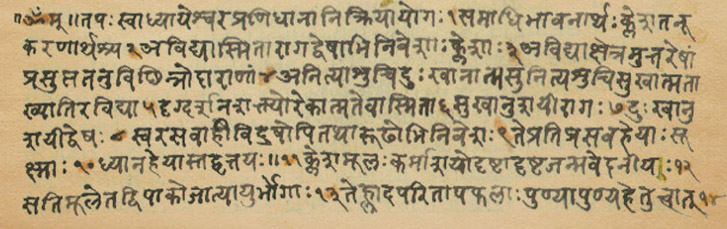 ॥ॐम्॥तपः स्वाध्यायेश्वरप्रणिधानानि क्रियायोगः १ समाधिभावनार्थः क्लेशतनू
करणार्थश्च २ अविद्यास्मितारागद्वेषाभिनिवेशाः क्लेशाः ३ अविद्याक्षेत्रमुत्तरेषां
प्रसुप्ततनुविछिन्नोदाराणां ४ अनित्याशुचिदुःखानात्मसु नित्यशुचिसुखात्मता
ख्यातिरविद्या ५ दृग्दर्शनशक्त्योरेकात्मतेवास्मिता ६ सुखानुशयी रागः ७ दुःखानु
शयी द्वेषः ८ स्वरसवाही विदुषोपि तथा रूढोभिनिवेशः ९ ते प्रतिप्रसवहेयाः सू
क्ष्माः १० ध्यानहेयास्तद्वृत्तयः॥११ क्लेशमूलः कर्माशयो दृष्टादृष्टजन्मवेदनीयः १२
सति मूले तद्विपाको जात्यायुर्भोगाः १३ ते ह्लादपरितापफलाः पुण्यापुण्यहेतुत्वात् १४